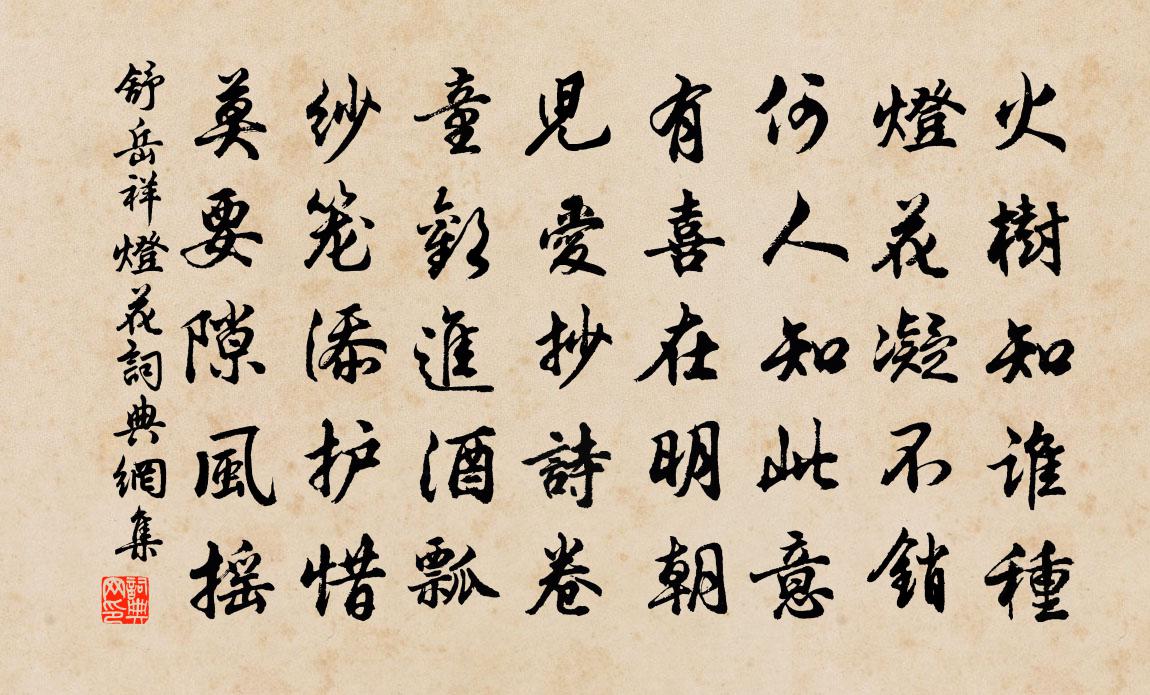 火樹知誰種
燈花凝不銷
何人知此意
有喜在明朝
児愛抄詩卷
童歡進酒瓢
纱笼添护惜
莫要隙風摇
舒岳祥燈花詞典網集
詞典網印